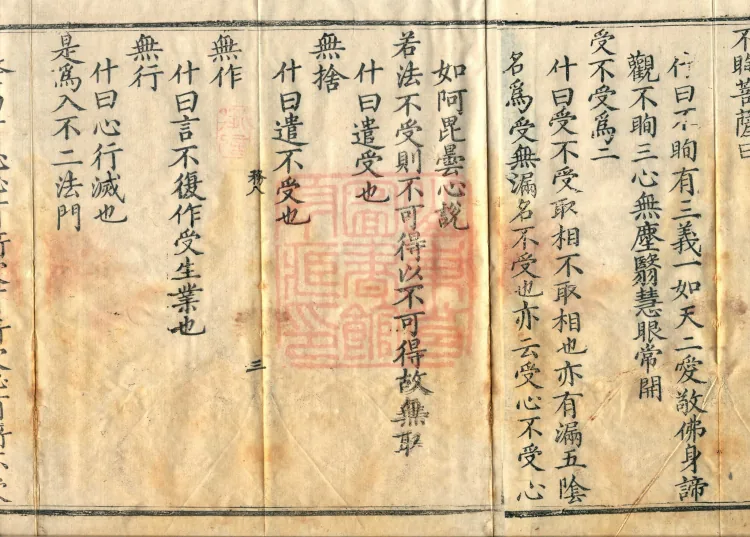 不眴菩薩曰
什曰不眴有三義一如天二愛敬佛身諦
觀不眴三心無塵翳慧眼常開
受不受爲二
什曰受不受取相不取相也亦有漏五陰
名爲受無漏名不受也亦云受心不受心
如阿毘曇心說
若法不受則不可得以不可得故無取
什曰遣受也
無捨
什曰遣不受也
三
無作
什曰言不復作受生業也
無行
什曰心行滅也
是爲入不二法門